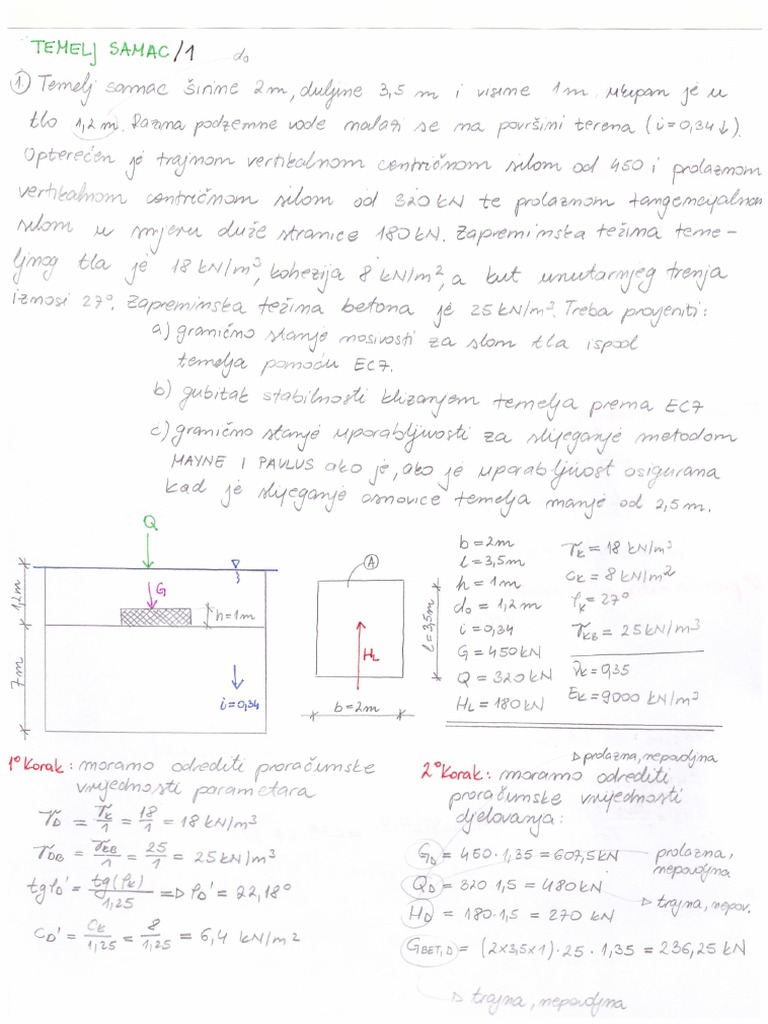 TEMELJ SAMAC/1
do
1. Temelj samac širine 2m, duljine 3,5 m i visine 1m ukopan je u
tlo 1,2m. Razina podzemne vode nalazi se na površini terena (i=0,34↓).
Opterećen je trajnom vertikalnom centričnom silom od 450 i prolaznom
vertikalnom centričnom silom od 320 kN te prolaznom tangencijalnom
silom u smjeru duže stranice 180 kN. Zapreminska težina teme-
ljnog tla je 18 kN/m³, kohezija 8 kN/m², a kut unutarnjeg trenja
iznosi 27°. Zapreminska težina betona je 25 kN/m³. Treba provjeriti:
a) granično stanje nosivosti za slom tla ispod
temelja pomoću EC7.
b) gubitak stabilnosti klizanjem temelja prema EC7
c) granično stanje uporabljivosti za slijeganje metodom
MAYNE I PAVLUS ako je, ako je uporabljivost osigurana
kad je slijeganje osnovice temelja manje od 2,5 m.
Q
G
1,2m
h=1m
7m
i=0,34
A
HL
b=2m
l=3,5m
b=2m
l=3,5m
h=1m
do=1,2m
i=0,34
G=450kN
Q=320kN
HL=180kN
γk=18 kN/m³
ck=8 kN/m²
φk=27°
γkB=25 kN/m³
νk=0,35
Ek=9000 kN/m²
1° Korak: moramo odrediti proračunske
vrijednosti parametara
γD = γk/1 = 18/1 = 18 kN/m³
γDB = γkB/1 = 25/1 = 25 kN/m³
tgφD' = tg(φk)/1,25 ⇒ φD' = 22,18°
cD' = ck/1,25 = 8/1,25 = 6,4 kN/m2
prolazna, nepovoljna
2° Korak: moramo odrediti
proračunske vrijednosti
djelovanja:
GD = 450·1,35 = 607,5kN
prolazna,
nepovoljna
QD = 320 1,5 = 480kN
trajna, nepov.
HD = 180·1,5 = 270 kN
GBET,D = (2x3,5x1)·25·1,35 = 236,25 kN
trajna, nepovoljna